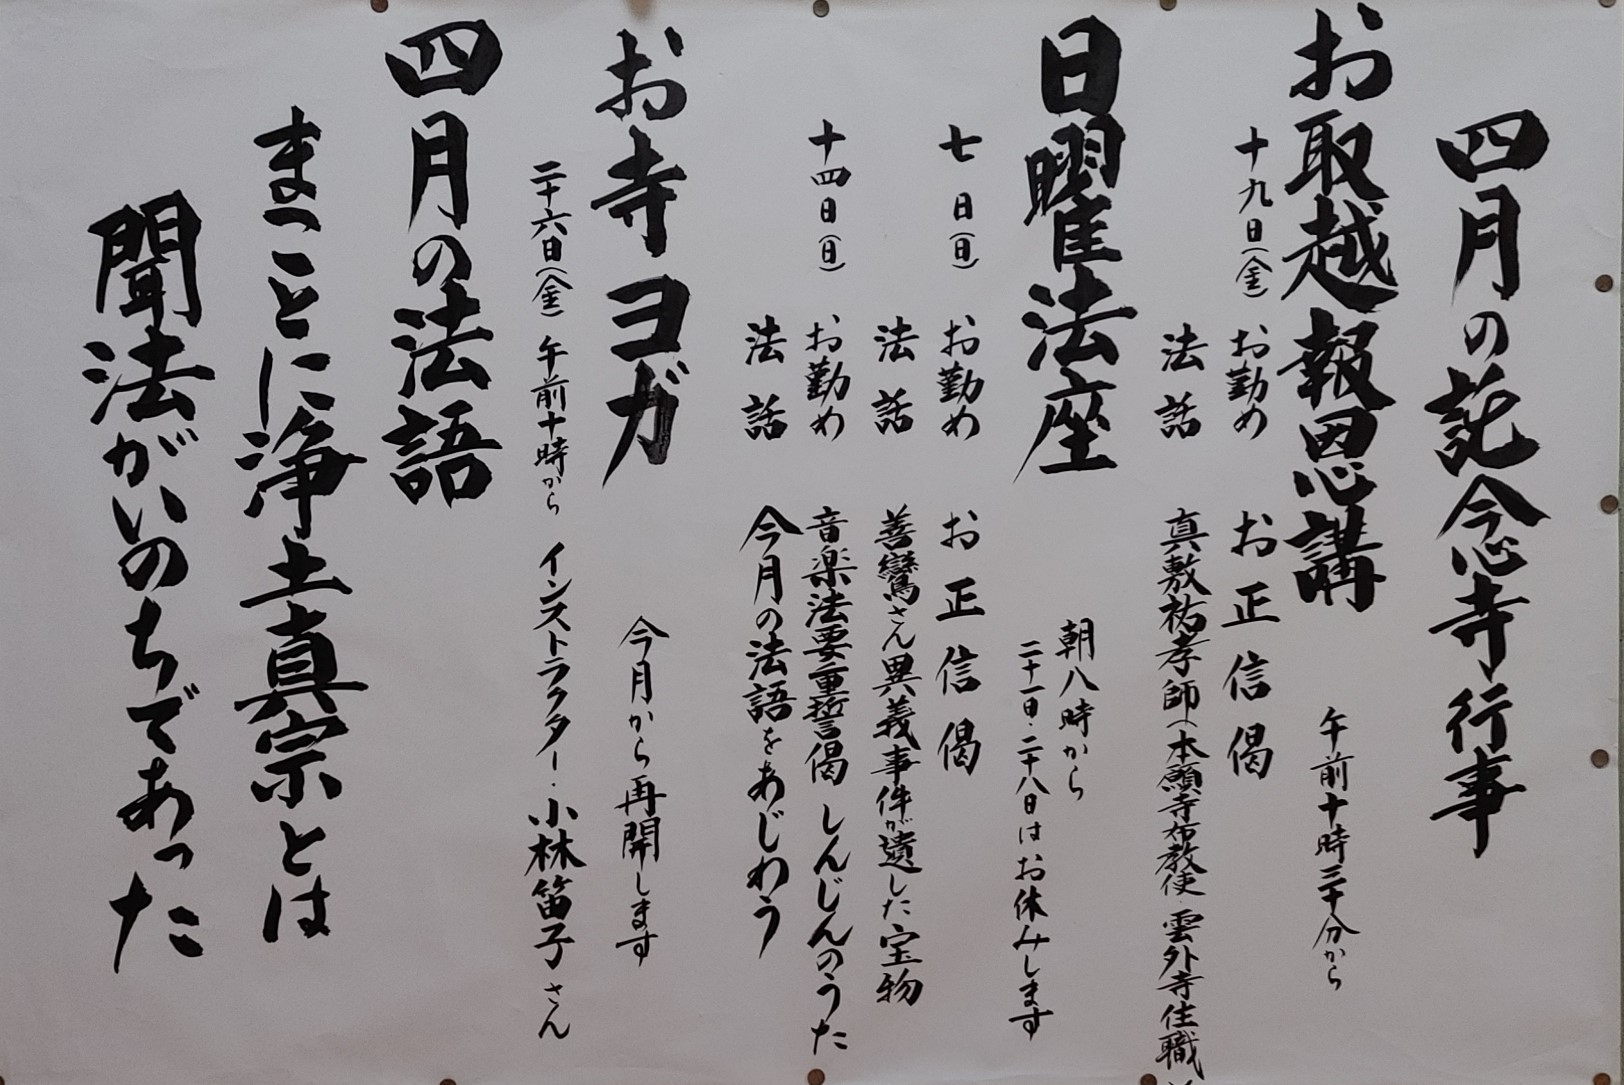 四月の託念寺行事
お取越報恩講
午前十時三十分から
十九日(金)
お勤め
お正信偈
法話
真敷祐孝師(本願寺布教使・雲外寺住職
日曜法座
朝八時から
二十一日・二十八日はお休みします
七日(日)
お勤め
お正信偈
法話
善鸞さん異義事件が遺した宝物
十四日(日)
お勤め
音楽法要重誓偈 しんじんのうた
法話
今月の法語をあじわう
お寺ヨガ
今月から再開します
二十六日(金) 午前十時から インストラクター・小林笛子さん
四月の法語
まことに浄土真宗とは
聞法がいのちであった